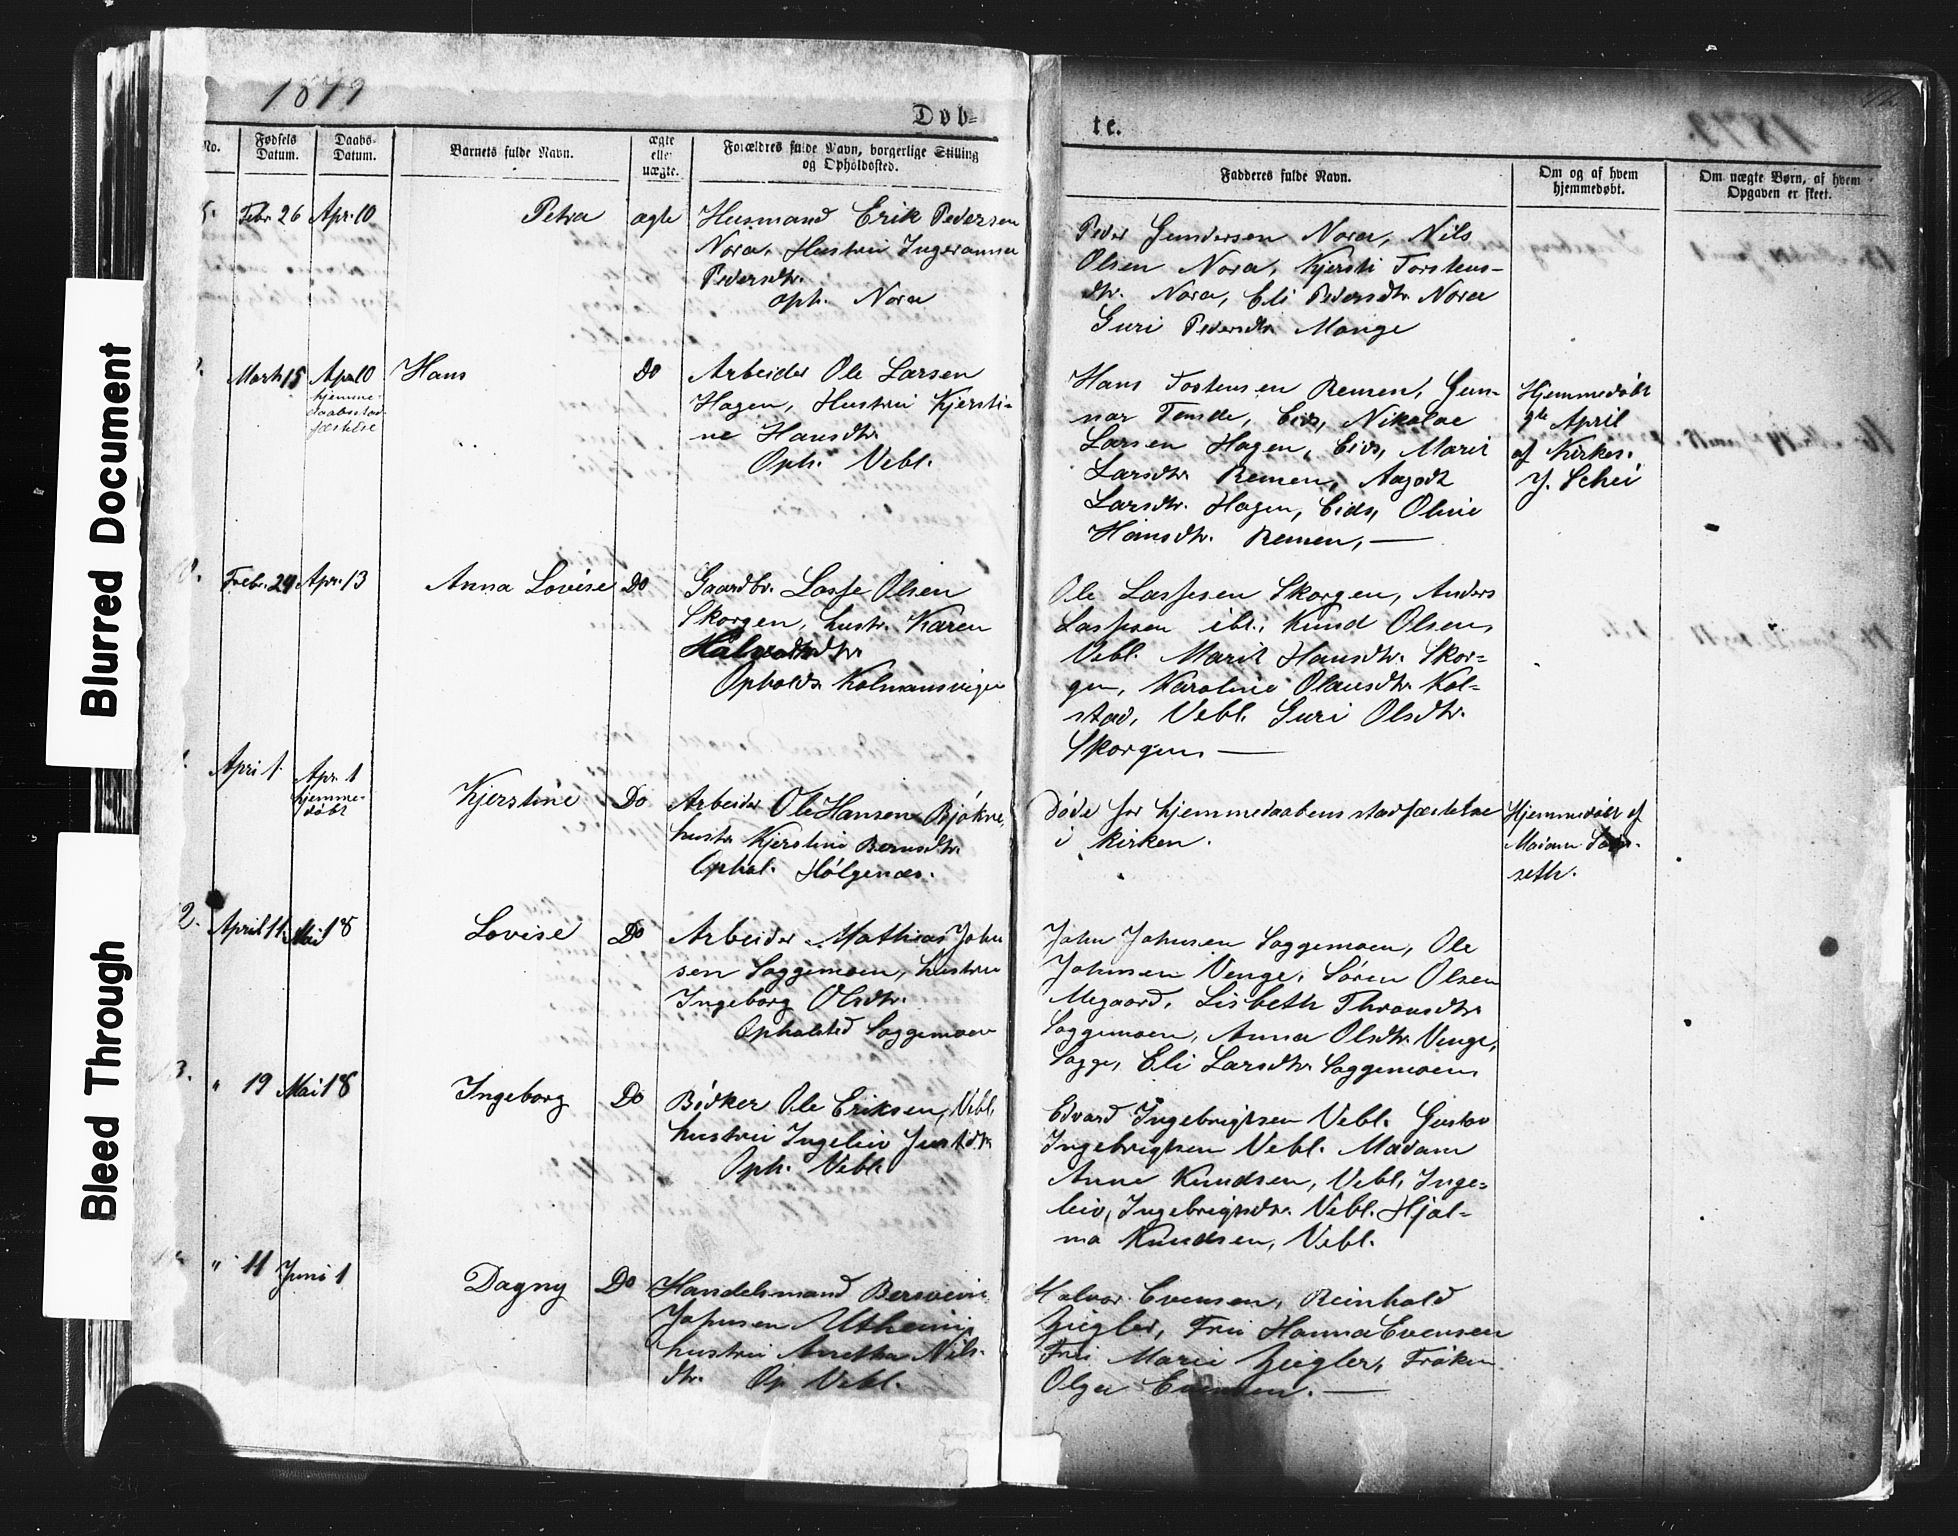 Blurred Document
Bleed Through
1879
Døb-
te.
1879.
No.
Fødsels Datum.
Daabs-Datum.
Barnets fulde Navn.
ægte eller uægte.
Forældres fulde Navn, borgerlige Stilling
og Opholdssted.
Fadderes fulde Navn.
Om og af hvem
hjemmedøbt.
Om uægte Børn, af hvem
Opgaven er skeet.
Febr 26 Apr. 10 Petra ægte
Husmand Erik Pedersen
Nora, Hustru Ingeranna
Pedersdtr.
oph. Nora
Peder Gundersen Nora, Nils
Olsen Nora, Kjersti Torstens-
dtr. Nora, Eli Pedersdtr. Nora
Guri Pedersdtr. Monge
Marts 15 Apr 10 Hans Do
hjemme-
daabsstad-
fæstelse
Arbeider Ole Larsen
Hagen, Hustru Kjersti-
ne Hansdtr.
Oph. Vebl.
Hans Tostensen Remen, Gun-
nar Eids, Nikolae
Larsen Hagen, Eids, Marit
Larsdtr. Remen, Aagodt
Larsdtr. Hagen, Eids, Oline
Hansdtr. Remen, —
Hjemmedøbt
April
af Kirkes.
J. Schei
Febr. 24 Apr. 13 Anna Lovise Do
Gaardbr. Lasse Olsen
Skorgen, hustr. Karen
Opholds. Kolmansvigen
Ole Lassesen Skorgen, Anders
Lassesen ibl., Knud Olsen,
Vebl. Marit Hansdtr. Skor-
gen, Karoline Olausdtr. Kol-
stad, Vebl. Guri Olsdtr.
Skorgen, —
April 1. Apr. 1 Kjerstine Do
hjemme-
døbt
Arbeider Ole Hansen
hustr. Kjerstine Berusdtr.
Ophol. Holgenæs.
Døde før hjemmedaabens stadfæstelse
i kirken.
Hjemmedøbt af
seth.
2. April 11. Mai 18 Lovise Do
Arbeider Mathias John
sen Soggemoen, hustru
Ingeborg Olsdtr.
Opholsted Soggemoen
John Johnsen Soggemoen, Ole
Johnsen Venge, Søren Olsen
Megaard, Lisbeth Thronsdtr.
Soggemoen, Anna Olsdtr. Venge,
Sogge, Eli Larsdtr. Soggemoen,
3. " 19 Mai 18 Ingeborg Do
Bødker Ole Eriksen, Vebl.
hustru Ingeleiv
Oph. Vebl.
Edvard Ingebrigtsen Vebl. Gustav
Ingebrigtsen Vebl. Madam
Anne Knudsen, Vebl. Inge-
leiv, Ingebrigtsdtr. Vebl. Hjal-
ma Knudsen, Vebl.
" 11 Juni 1 Dagny Do
Handelsmand
Johnsen Utheim,
hustru Nils-
dtr. Op Vebl.
Halvor Evensen, Reinhold
Ziegler, Fru Hanna Evensen
Fru Marie Ziegler, Frøken
Olga Evensen. —